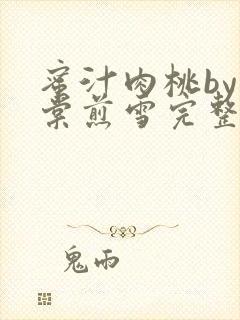 蜜汁肉桃by
棠煎雪完整
鬼雨